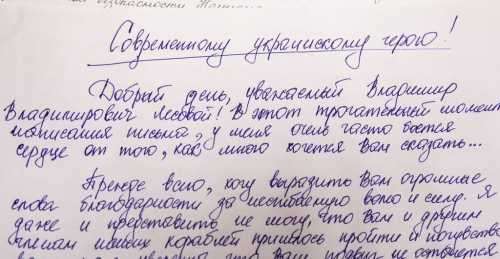 безопасности
Современному украинскому герою!
Добрый день, уважаемый Владимир
Владимирович Лесовой! В этот трогательный момент
написания письма, у меня очень часто бьется
сердце от того, как много хочется Вам сказать...
Прежде всего, хочу выразить Вам огромные
слова благодарности за несгибаемую волю и силу. Я
даже и представить не могу, что Вам и другим
членам наших кораблей пришлось пройти и почувство
что Ваш подвиг не останется